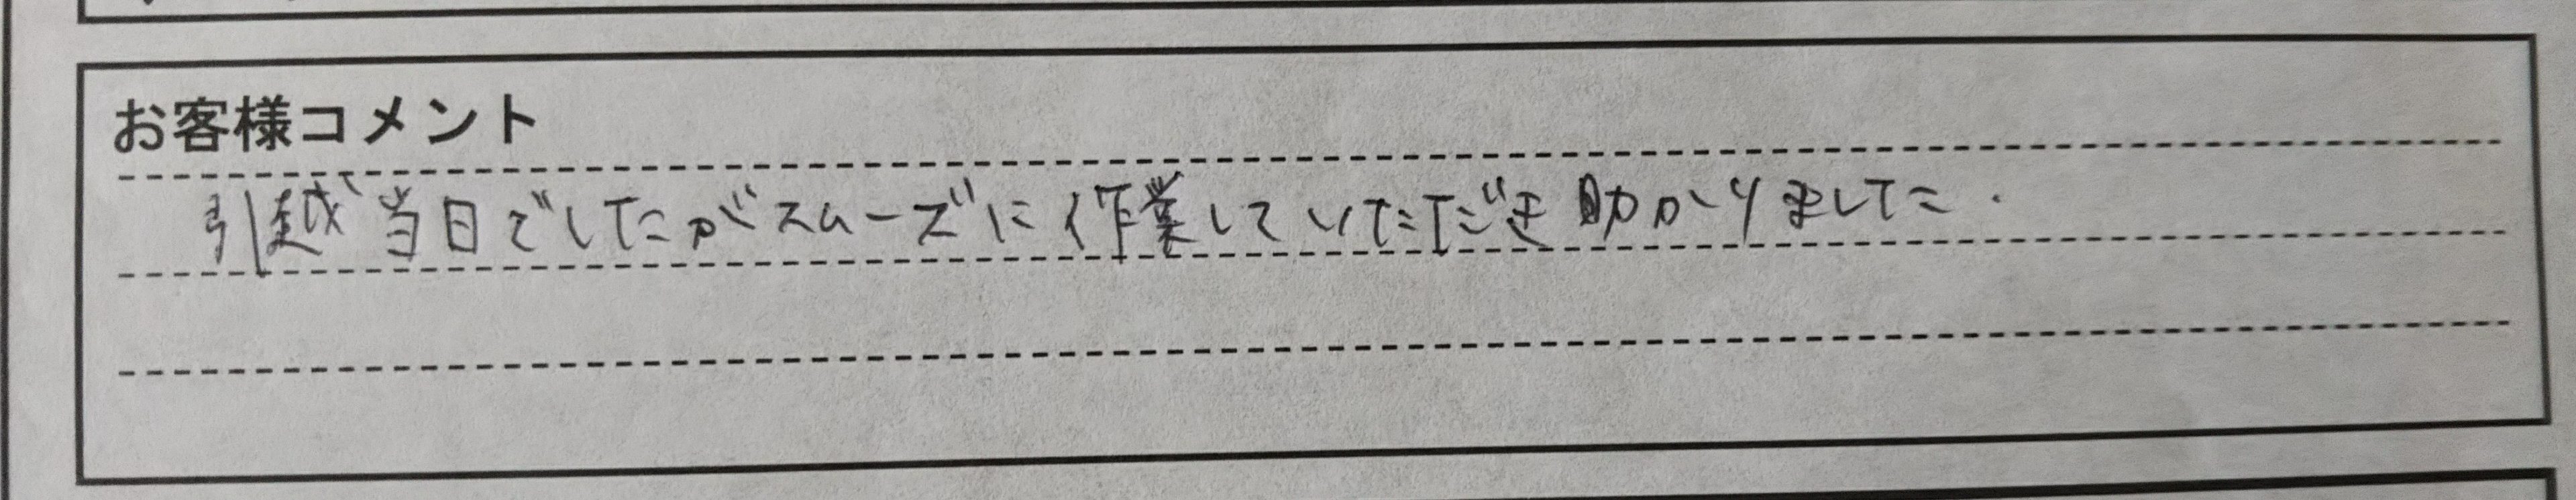 お客様コメント
引越当日でしたがスムーズに作業していただき助かりました.